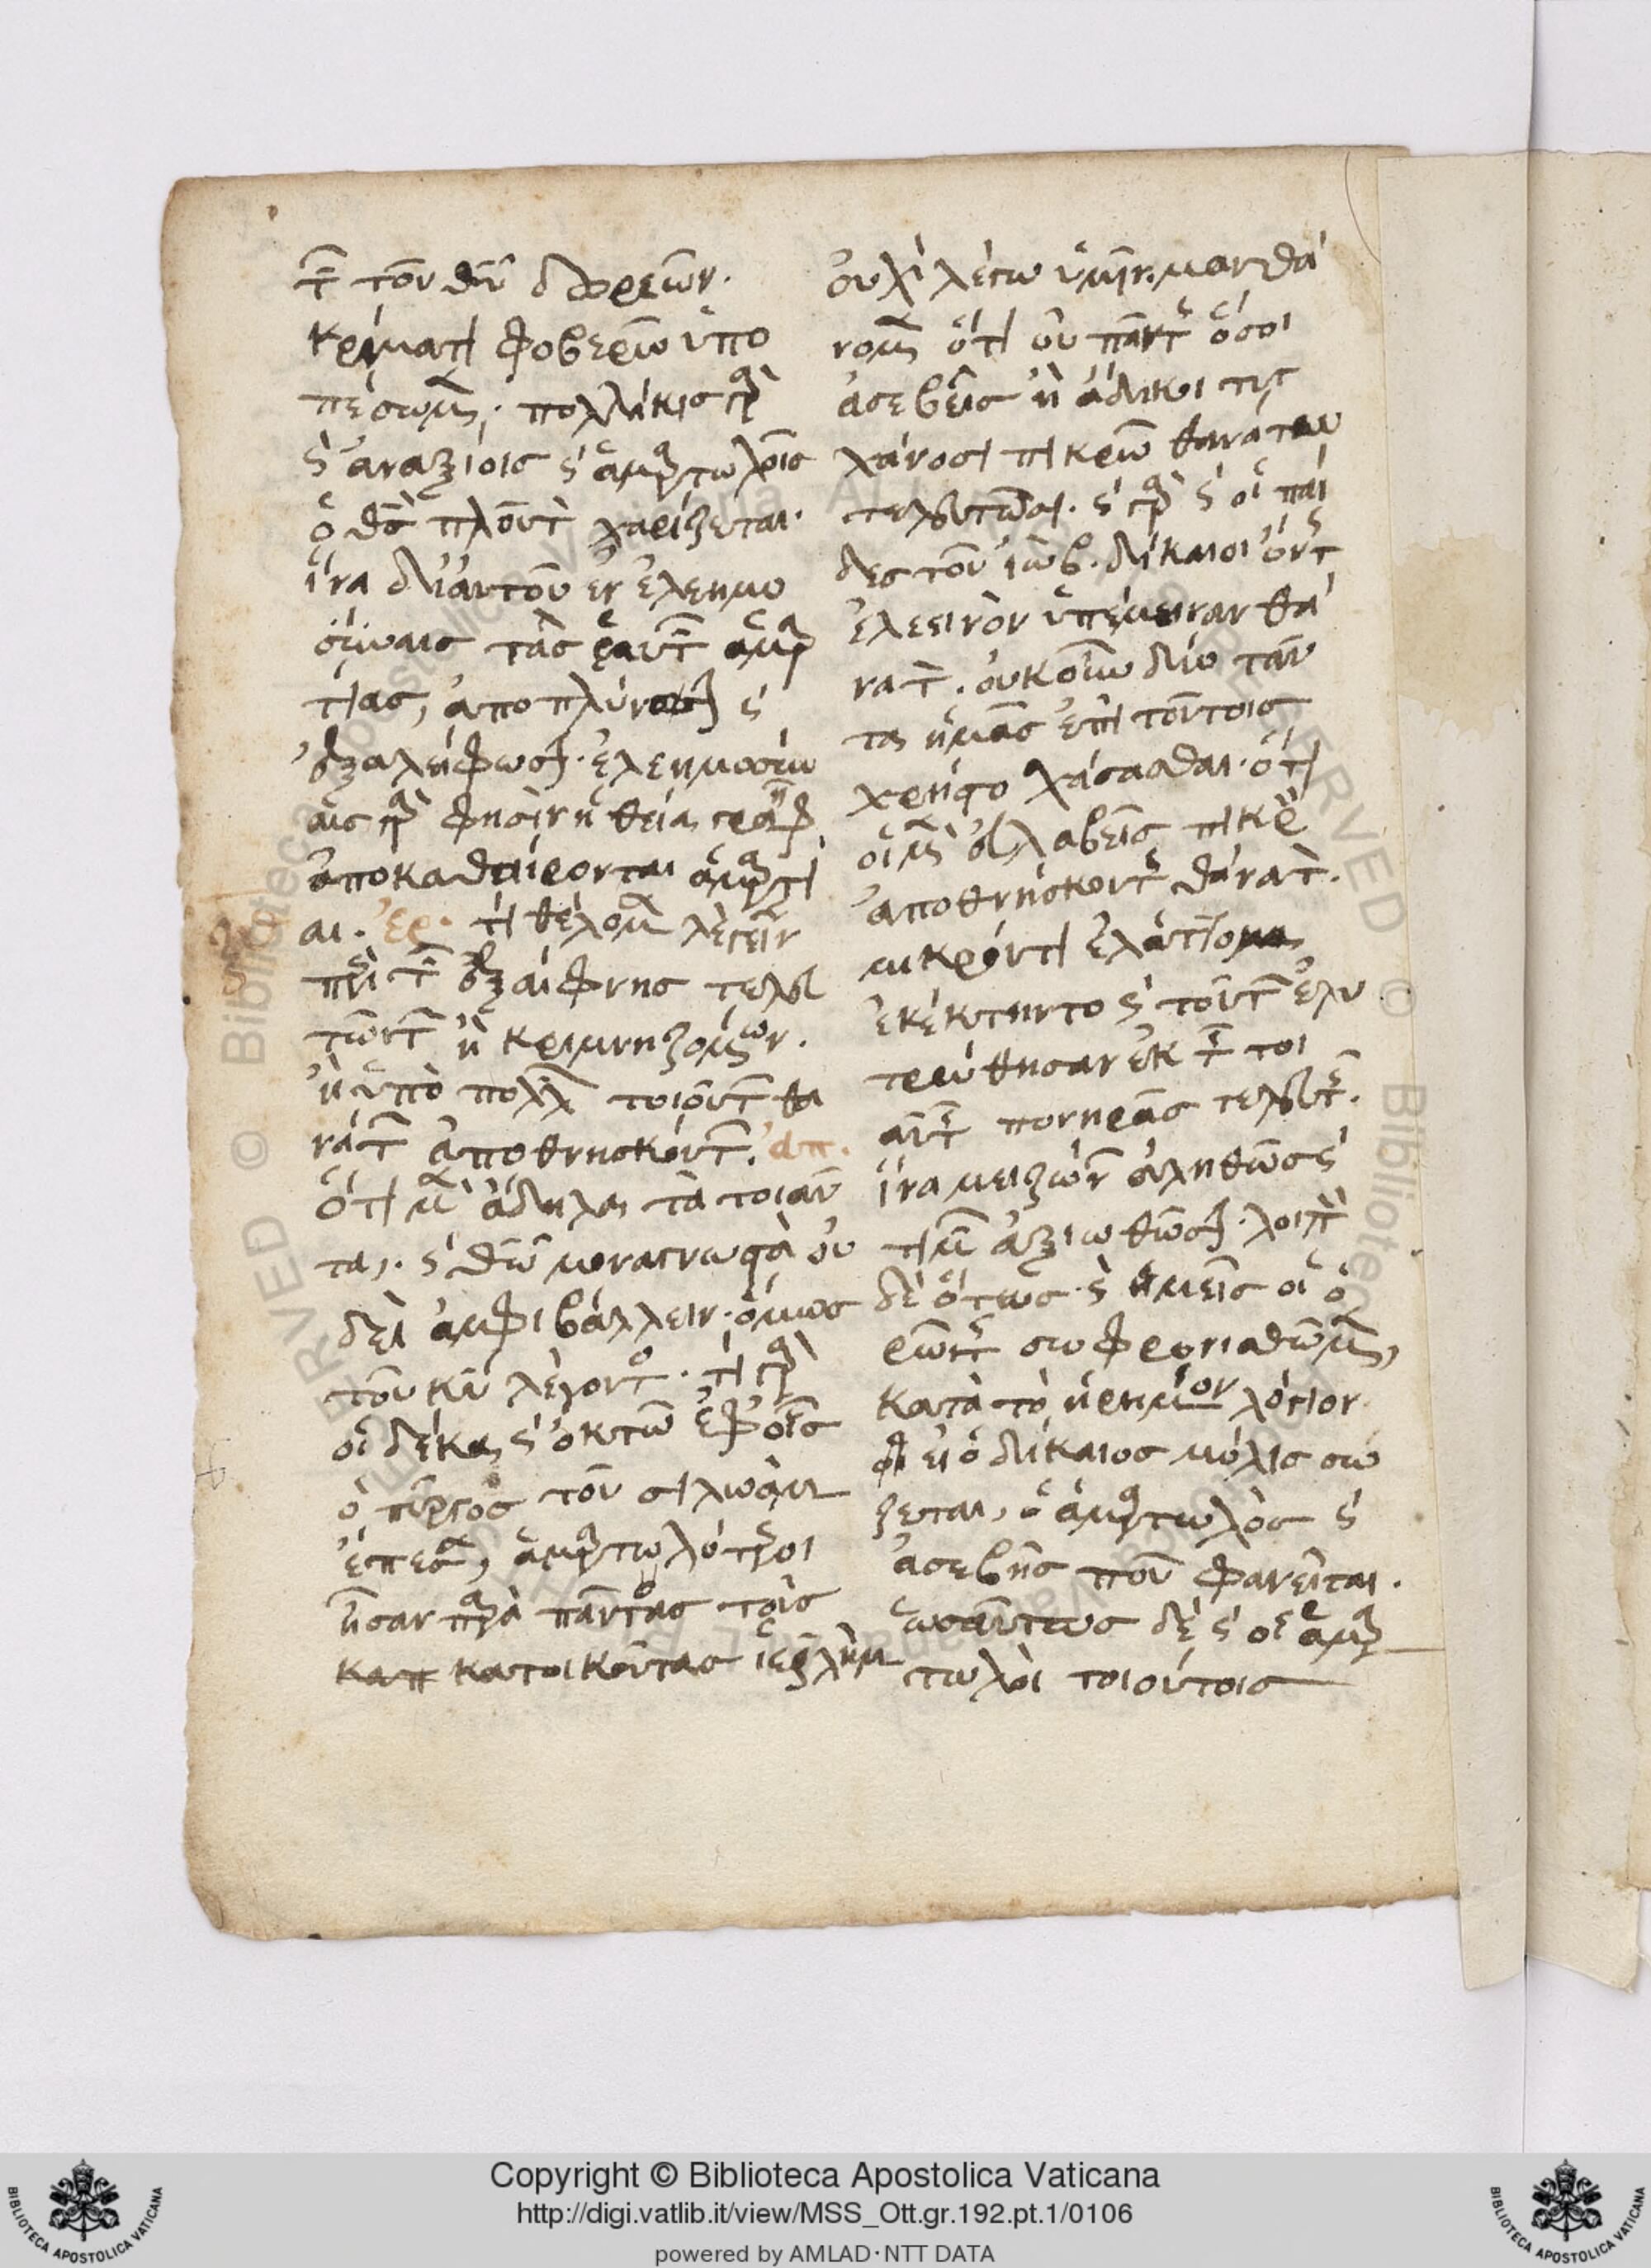 τ τοῦ θῦ δωρεῶν.
κρίματι φοβερῶ ὑπο
πέσωμ. πολλάκις γρ
ς ἀναξίοις ς ἁμρτωλοῖς
ὁ θς πλοῦτ χαρίζεται.
ἵνα δι' αὐτοῦ ἐν ἐλεημο
σύναις τὰς ἑαυτ ἁμρ
τίας, ἀποπλύνωσι ς
ἐξαλείψωσι. ἐλεημοσύν
αις γρ φησὶν ἡ θεία γραφ
ἀποκαθαίρονται ἁμρτί
αι. ἐρ. τί θέλομ λέγειν
περὶ τ ἐξαίφνης τελευ
τώντ ἢ κριμνηζομένων.
ἢ ὑπὸ πολλ τοιούτ θα
νάτ ἀποθνησκόντ. ἀπ.
ὅτι μ ἄδηλα τὰ τοιαῦ
τα. ς θῶ μόνα γνωστὰ οὐ
δεῖ ἀμφιβάλλειν. ὅμως
τοῦ κῦ λέγοντο. τί γρ
οἱ δέκα ς ὀκτὼ ἐφ' οἷς
ὁ πύργος τοῦ σιλωὰμ
ἔπεσ, ἁμρτωλότεροι
ἦσαν παρὰ πάντας τοὺς
κατοικοῦντας ἱερλὴμ
οὐχὶ λέγω ὑμῖν. μανθά
νομ ὅτι οὐ πάντ ὅσοι
ἀσεβεῖς ἢ ἄδικοι τυγ
χάνοσι πικρῶ θανάτω
τελευτῶσι. ς γρ ς οἱ παῖ
δες τοῦ ἰώβ. δίκαιοι ὄντ
ἐλεεινὸν ὑπέμειναν θά
νατ. οὐκοῦν δύο ταῦ
τα ἡμᾶς ἐπὶ τούτοις
χρὴ στοχάσασθαι. ὅτι
οἱ μ εὐλαβεῖς πικρ
ἀποθνήσκοντ θάνατ.
μικρόν τι ἐλάττομα
ἐκέκτηντο ς τοῦτ ἐλυ
τρώθησαν ἐκ τ τοι
αύτ πονηρᾶς τελευτ.
ἵνα μειζών ἀληθῶς ς
τιμ ἀξιωθῶσι. λοιπ
δὲ ὅτως. ς ἡμεῖς οἱ ὁ
ρῶντ σωφρονισθῶμ,
κατὰ τὸ εἰρημένον λόγιον
εἰ ὁ δίκαιος μόλις σώ
ζεται, ὁ ἁμρτωλὸς ς
ἀσεβὴς ποῦ φανεῖται.
ὡσαύτως δὲ ς οἱ ἁμρ
τωλοὶ τοιούτοις
Copyright © Biblioteca Apostolica Vaticana
http://digi.vatlib.it/view/MSS_Ott.gr.192.pt.1/0106
powered by AMLAD·NTT DATA